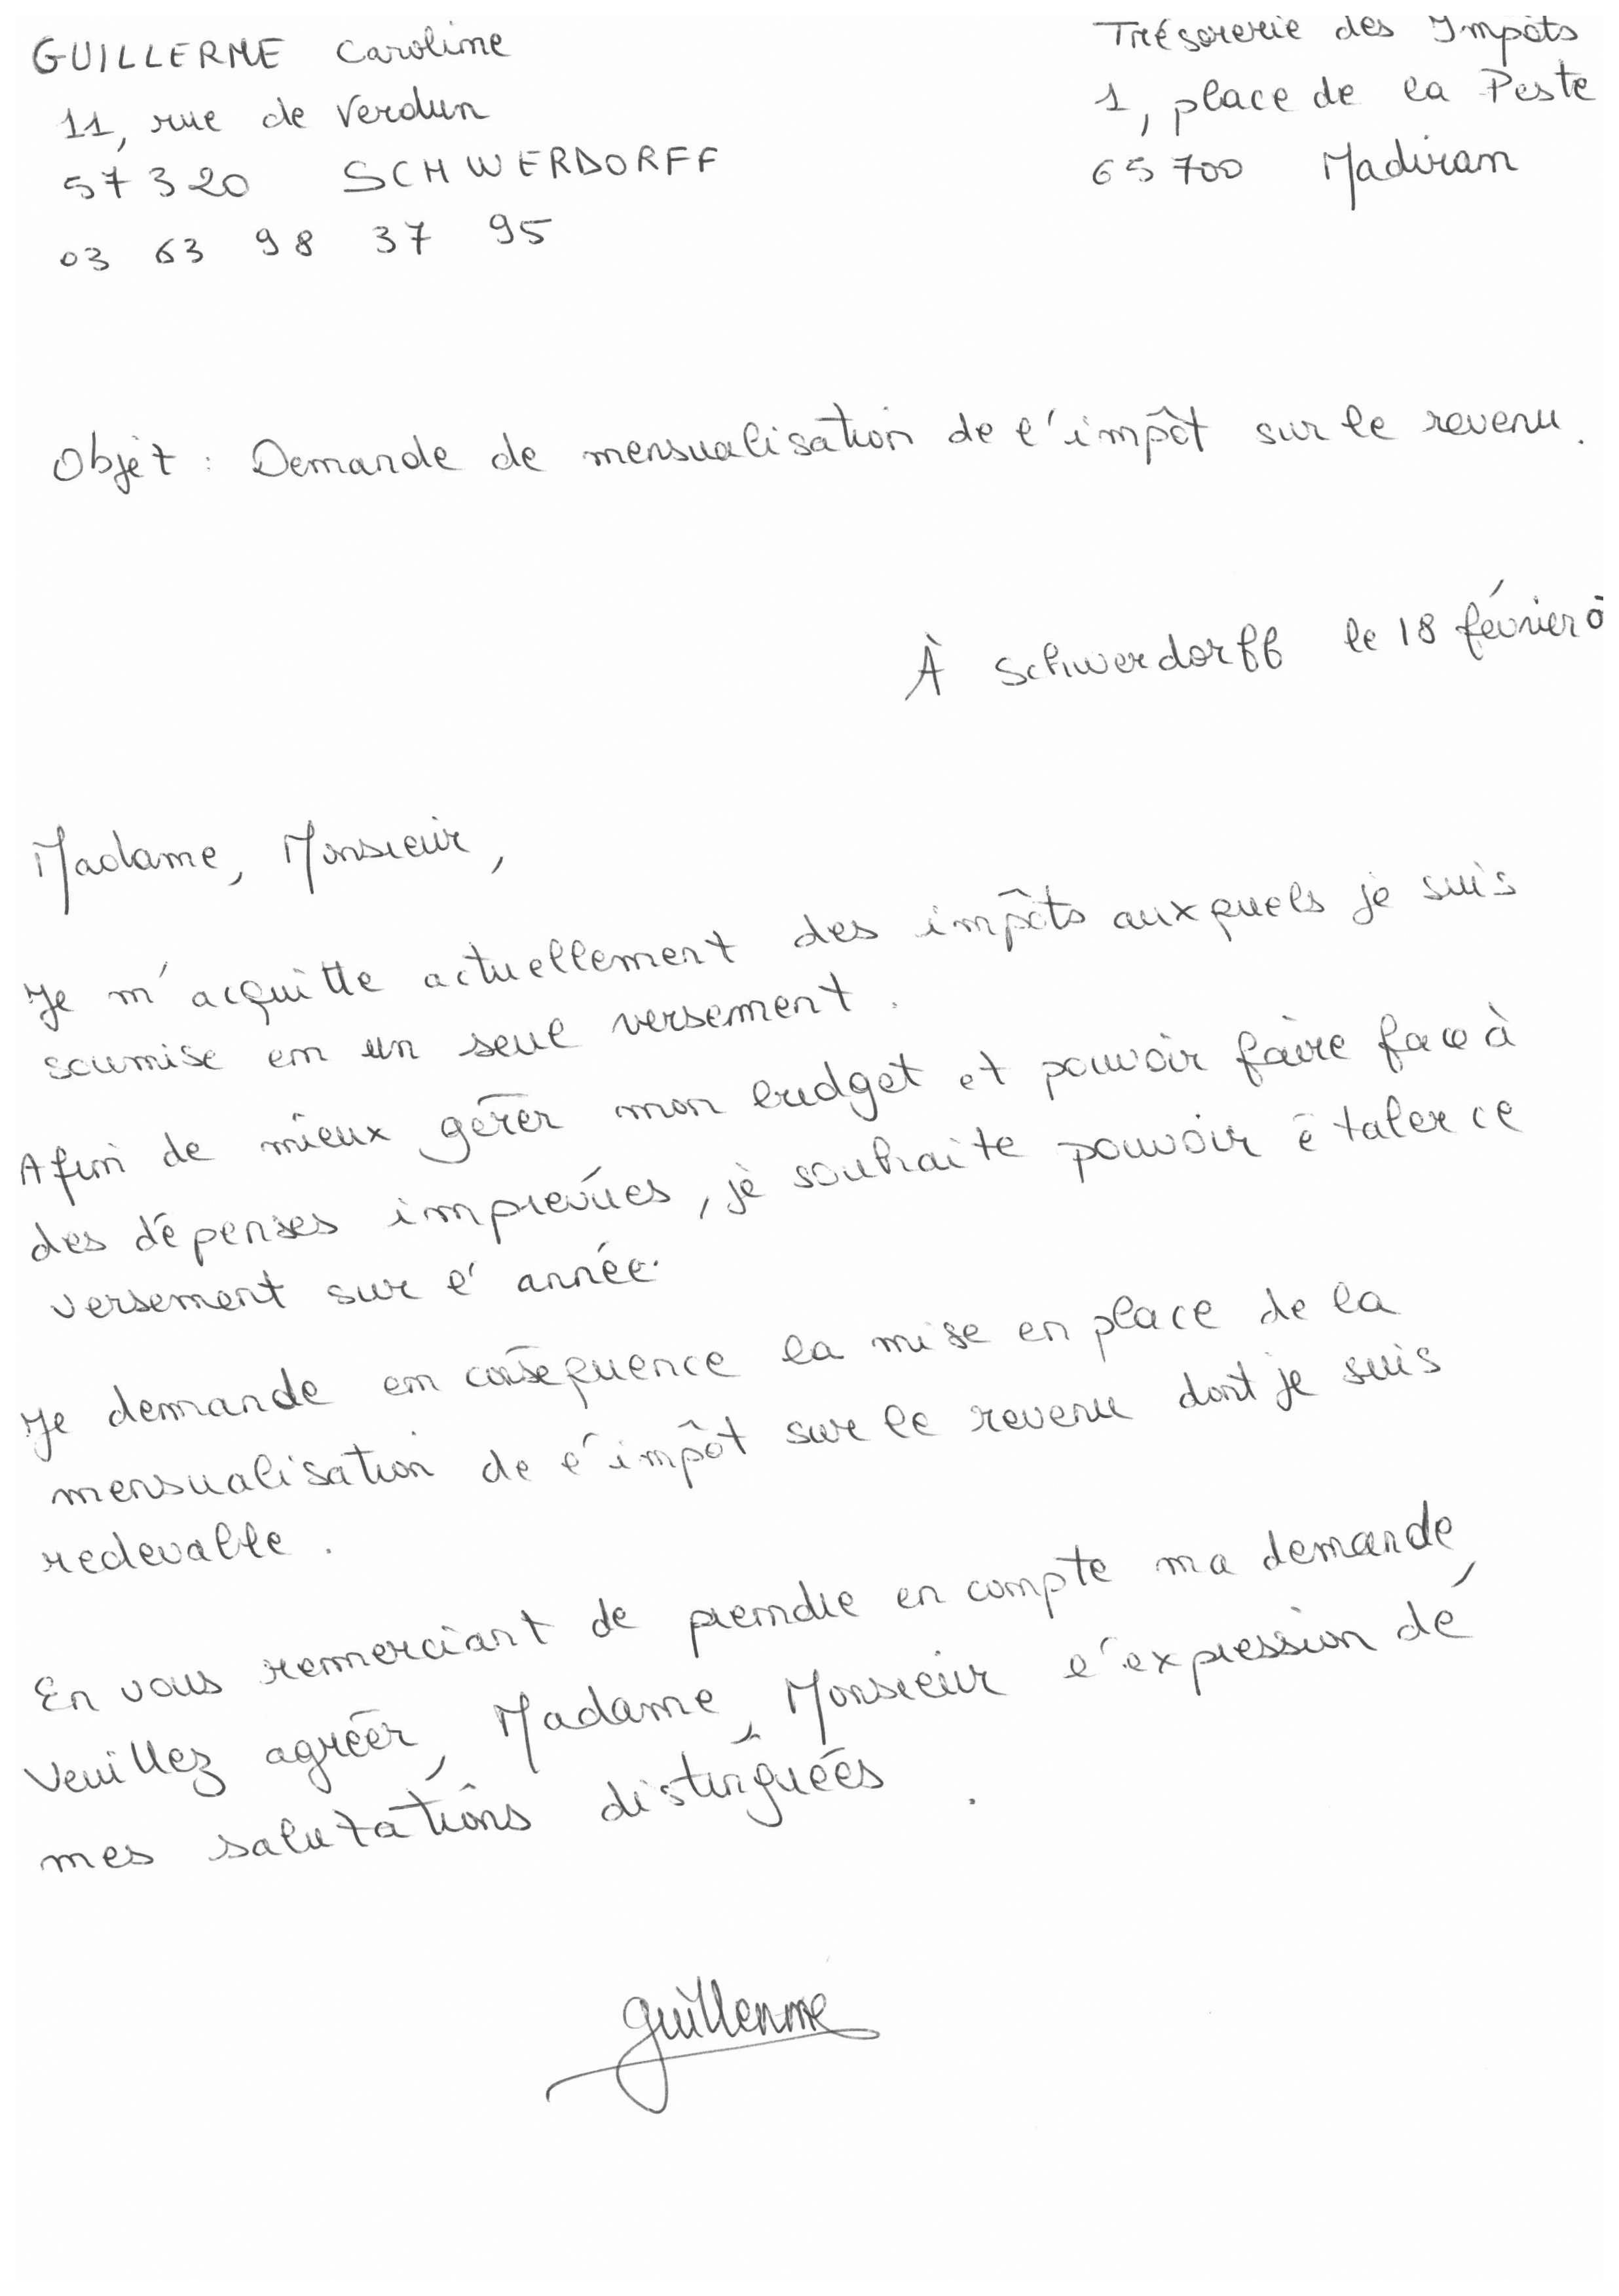 GUILLERME Caroline
11, rue de Verdun
57320 SCHWERDORFF
03 63 98 37 95
Trésorerie des Impôts
1, place de la Peste
65700 Madiran
Objet : Demande de mensualisation de l'impôt sur le revenu.
À Schwerdorff le 18 février
Madame, Monsieur,
Je m'acquitte actuellement des impôts auxquels je suis
soumise en un seul versement.
Afin de mieux gérer mon budget et pouvoir faire face à
des dépenses imprévues, je souhaite pouvoir étaler ce
versement sur l'année.
Je demande en conséquence la mise en place de la
mensualisation de l'impôt sur le revenu dont je suis
redevable.
En vous remerciant de prendre en compte ma demande,
Veuillez agréer, Madame, Monsieur l'expression de
mes salutations distinguées.
Guillerme